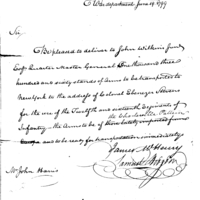 War department June 19 1799
Sir
Be pleased to deliver to John Wilkins Junr
Esqr Quarter Master General One thousand three
hundred and sixty stands of Arms to be transported to
New York to the address of Colonel Ebenezer Stevens
for the use of the Twelfth and sixteenth Regiments of
Infantry — the Arms to be of the Charleville Pattern
and to be ready for transportation immediately
James McHenry
Samuel Hodgdon
Mr John Harris